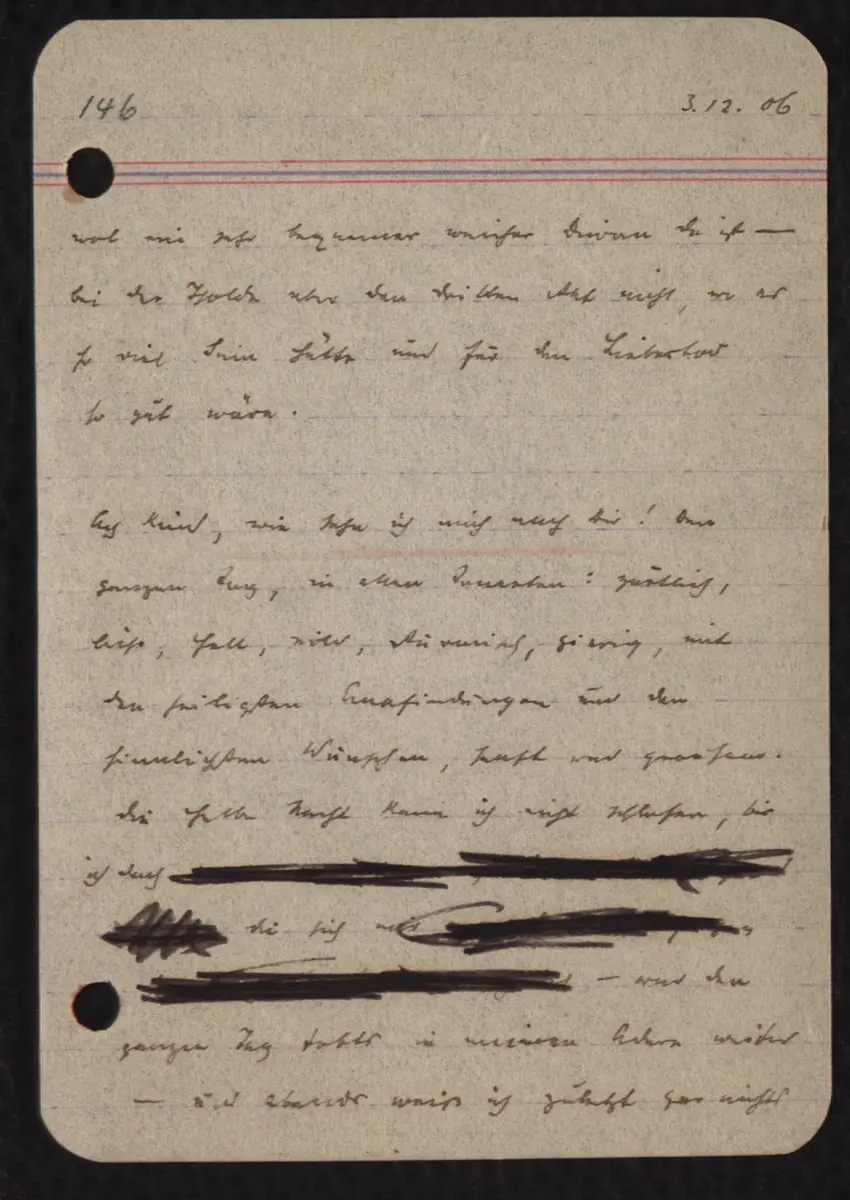 146 3.12.06
wol ein sehr bequemer weicher Divan da ist —
bei der Isolde aber den dritten Akt nicht, wo er
so viel Sinn hätte und für den Liebestod
so gut wäre.
Ach Kind, wie sehn ich mich nach Dir! Den
ganzen Tag, in allen Tonarten: zärtlich,
heiß, hell, wild, stürmisch, gierig, mit
den heiligsten Empfindungen und den
sinnlichsten Wünschen, sanft und grausam.
Die halbe Nacht kann ich nicht schlafen, bis
ich durch
die sich mir
— und den
ganzen Tag tobts in meinen Adern weiter
— und abends weiss ich zuletzt gar nichts